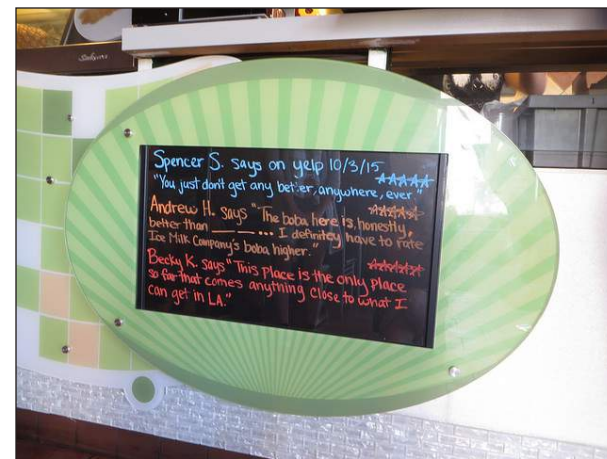 Spencer S. says on yelp 10/3/15
"You just don't get any better, anywhere, ever."
Andrew H. says "The boba here is, honestly,
better than ___ __ ... I definitley have to rate
Ice Milk Company's boba higher."
Becky K. says "This place is the only place
so far that comes anything close to what I
can get in LA."